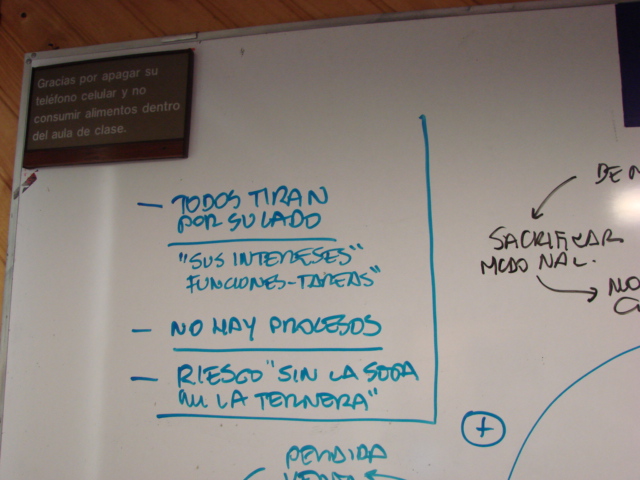 Gracias por apagar su
teléfono celular y no
consumir alimentos dentro
del aula de clase.
— TODOS TIRAN
POR SU LADO
"SUS INTERESES"
FUNCIONES-TAREAS"
— NO HAY PROCESOS
— RIESGO "SIN LA SOGA
NI LA TERNERA"
SACRIFICAR
MCDO NAL.
NO
+
PERDIDA